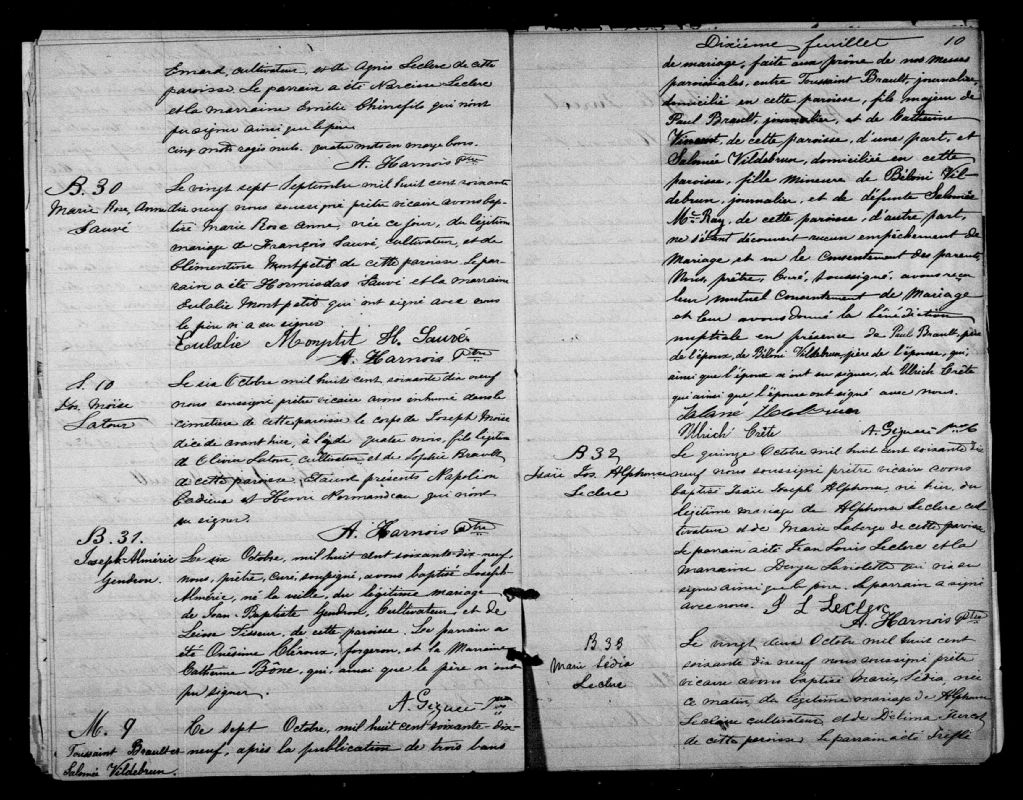 Emard, cultivateur, et de Agnis Leclerc de cette
paroisse. Le parrain a été Narcisse Leclerc
et la marraine Emélie Chinefils qui n'ont
pu signer ainsi que le père.
cinq mots rayés nuls. quatre mots en marge bons.
A. Harnois Ptre
B. 30
Marie Rose Anne
Sauvé
Le vingt sept Septembre mil huit cent soixante
dix neuf nous soussigné prêtre vicaire avons bap-
tisé Marie Rose Anne, née ce jour, du légitime
mariage de François Sauvé, cultivateur, et de
Clémentine Montpetit de cette paroisse. Le par-
rain a été Hormisdas Sauvé et la marraine
Eulalie Montpetit qui ont signé avec nous
le père n'a su signer
Eulalie Monptit H. Sauvé
A. Harnois Ptre
S. 10
Jos. Moïse
Latour
Le six Octobre mil huit cent soixante dix neuf
nous soussigné prêtre vicaire avons inhumé dans le
cimetière de cette paroisse le corps de Joseph Moïse
décédé avant hier, à l'age de quatre mois, fils légitime
d'Olivier Latour, cultivateur, et de Sophie Brault
de cette paroisse. Etaient présents Napoléon
Cadieux et Henri Normandeau qui n'ont
su signer.
A. Harnois Ptre
B. 31.
Joseph-Alméric
Gendron.
Le six Octobre, mil huit cent soixante dix-neuf,
nous, prêtre, curé, soussigné, avons baptisé Joseph-
Alméric, né la veille, du légitime mariage
de Jean-Baptiste Gendron, Cultivateur, et de
Tisseur, de cette paroisse. Le parrain a
été Onésime Cléroux, forgeron, et la Marraine
Catherine Bône, qui, ainsi que le père n'ont
pu signer.
M. 9
Toussaint Brault et
Salomée Vildebrun.
Ce sept Octobre, mil huit cent soixante-dix-
neuf, après la publication de trois bans
Dixième feuillet 10
de mariage, faite aux prône de nos messes
paroissiales, entre Toussaint Brault, journalier,
domicilié en cette paroisse, fils majeur de
Paul Brault, journalier, et de Catherine
Vincent, de cette paroisse, d'une part, et
Salomée Vildebrun, domiciliée en cette
paroisse, fille mineure de Béloni Vil-
debrun, journalier, et de défunte Salomée
Mc Kay, de cette paroisse, d'autre part,
ne s'étant découvert aucun empêchement de
Mariage et vu le Consentement des parents,
Nous, prêtre, Curé, soussigné, avons reçu
leur mutuel Consentement de Mariage
et leur avons donné la bénédiction
nuptiale en présence de Paul Brault, père
de l'époux, de Béloni Vildebrun, père de l'épouse, qui,
ainsi que l'époux n'ont su signer, de Ulrich Crête
qui ainsi que l'épouse ont signé avec nous.
Ulrich Crête
B 32
Isaïe Jos. Alphonse
Leclerc
Le quinze Octobre mil huit cent soixante dix
neuf nous soussigné prêtre vicaire avons
baptisé Isaïe Joseph Alphonse, né hier, du
légitime mariage de Alphonse Leclerc cul-
tivateur et de Marie Laberge de cette paroisse
Le parrain a été Jean Louis Leclerc et la
marraine Laviolette qui n'a su
signer ainsi que le père. Le parrain a signé
avec nous. J L Leclerc
A. Harnois Ptre
B 33
Marie Lédia
Leclerc
Le vingt deux Octobre mil huit cent
soixante dix neuf nous soussigné prêtre
vicaire avons baptisé Marie Lédia, née
ce matin, du légitime mariage de Alphonse
Leclaire cultivateur, et de Délima
de cette paroisse. Le parrain a été